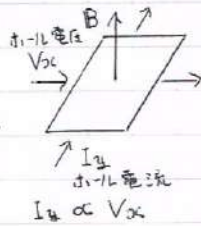 B
ホール電圧
Vx
Iy
ホール電流
Iy ∝ Vx